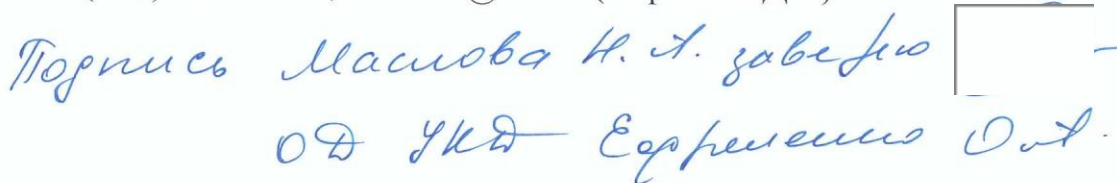 Подпись Маслова Н. А. заверяю
ОД УКД Ефременко О.А.